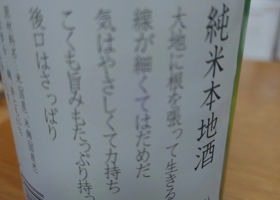 純米本地酒
大地に根を張って生きる
線が細くてはだめだ
気はやさしくて力持ち
こくも旨みもたっぷり持っ
後口はさっぱり